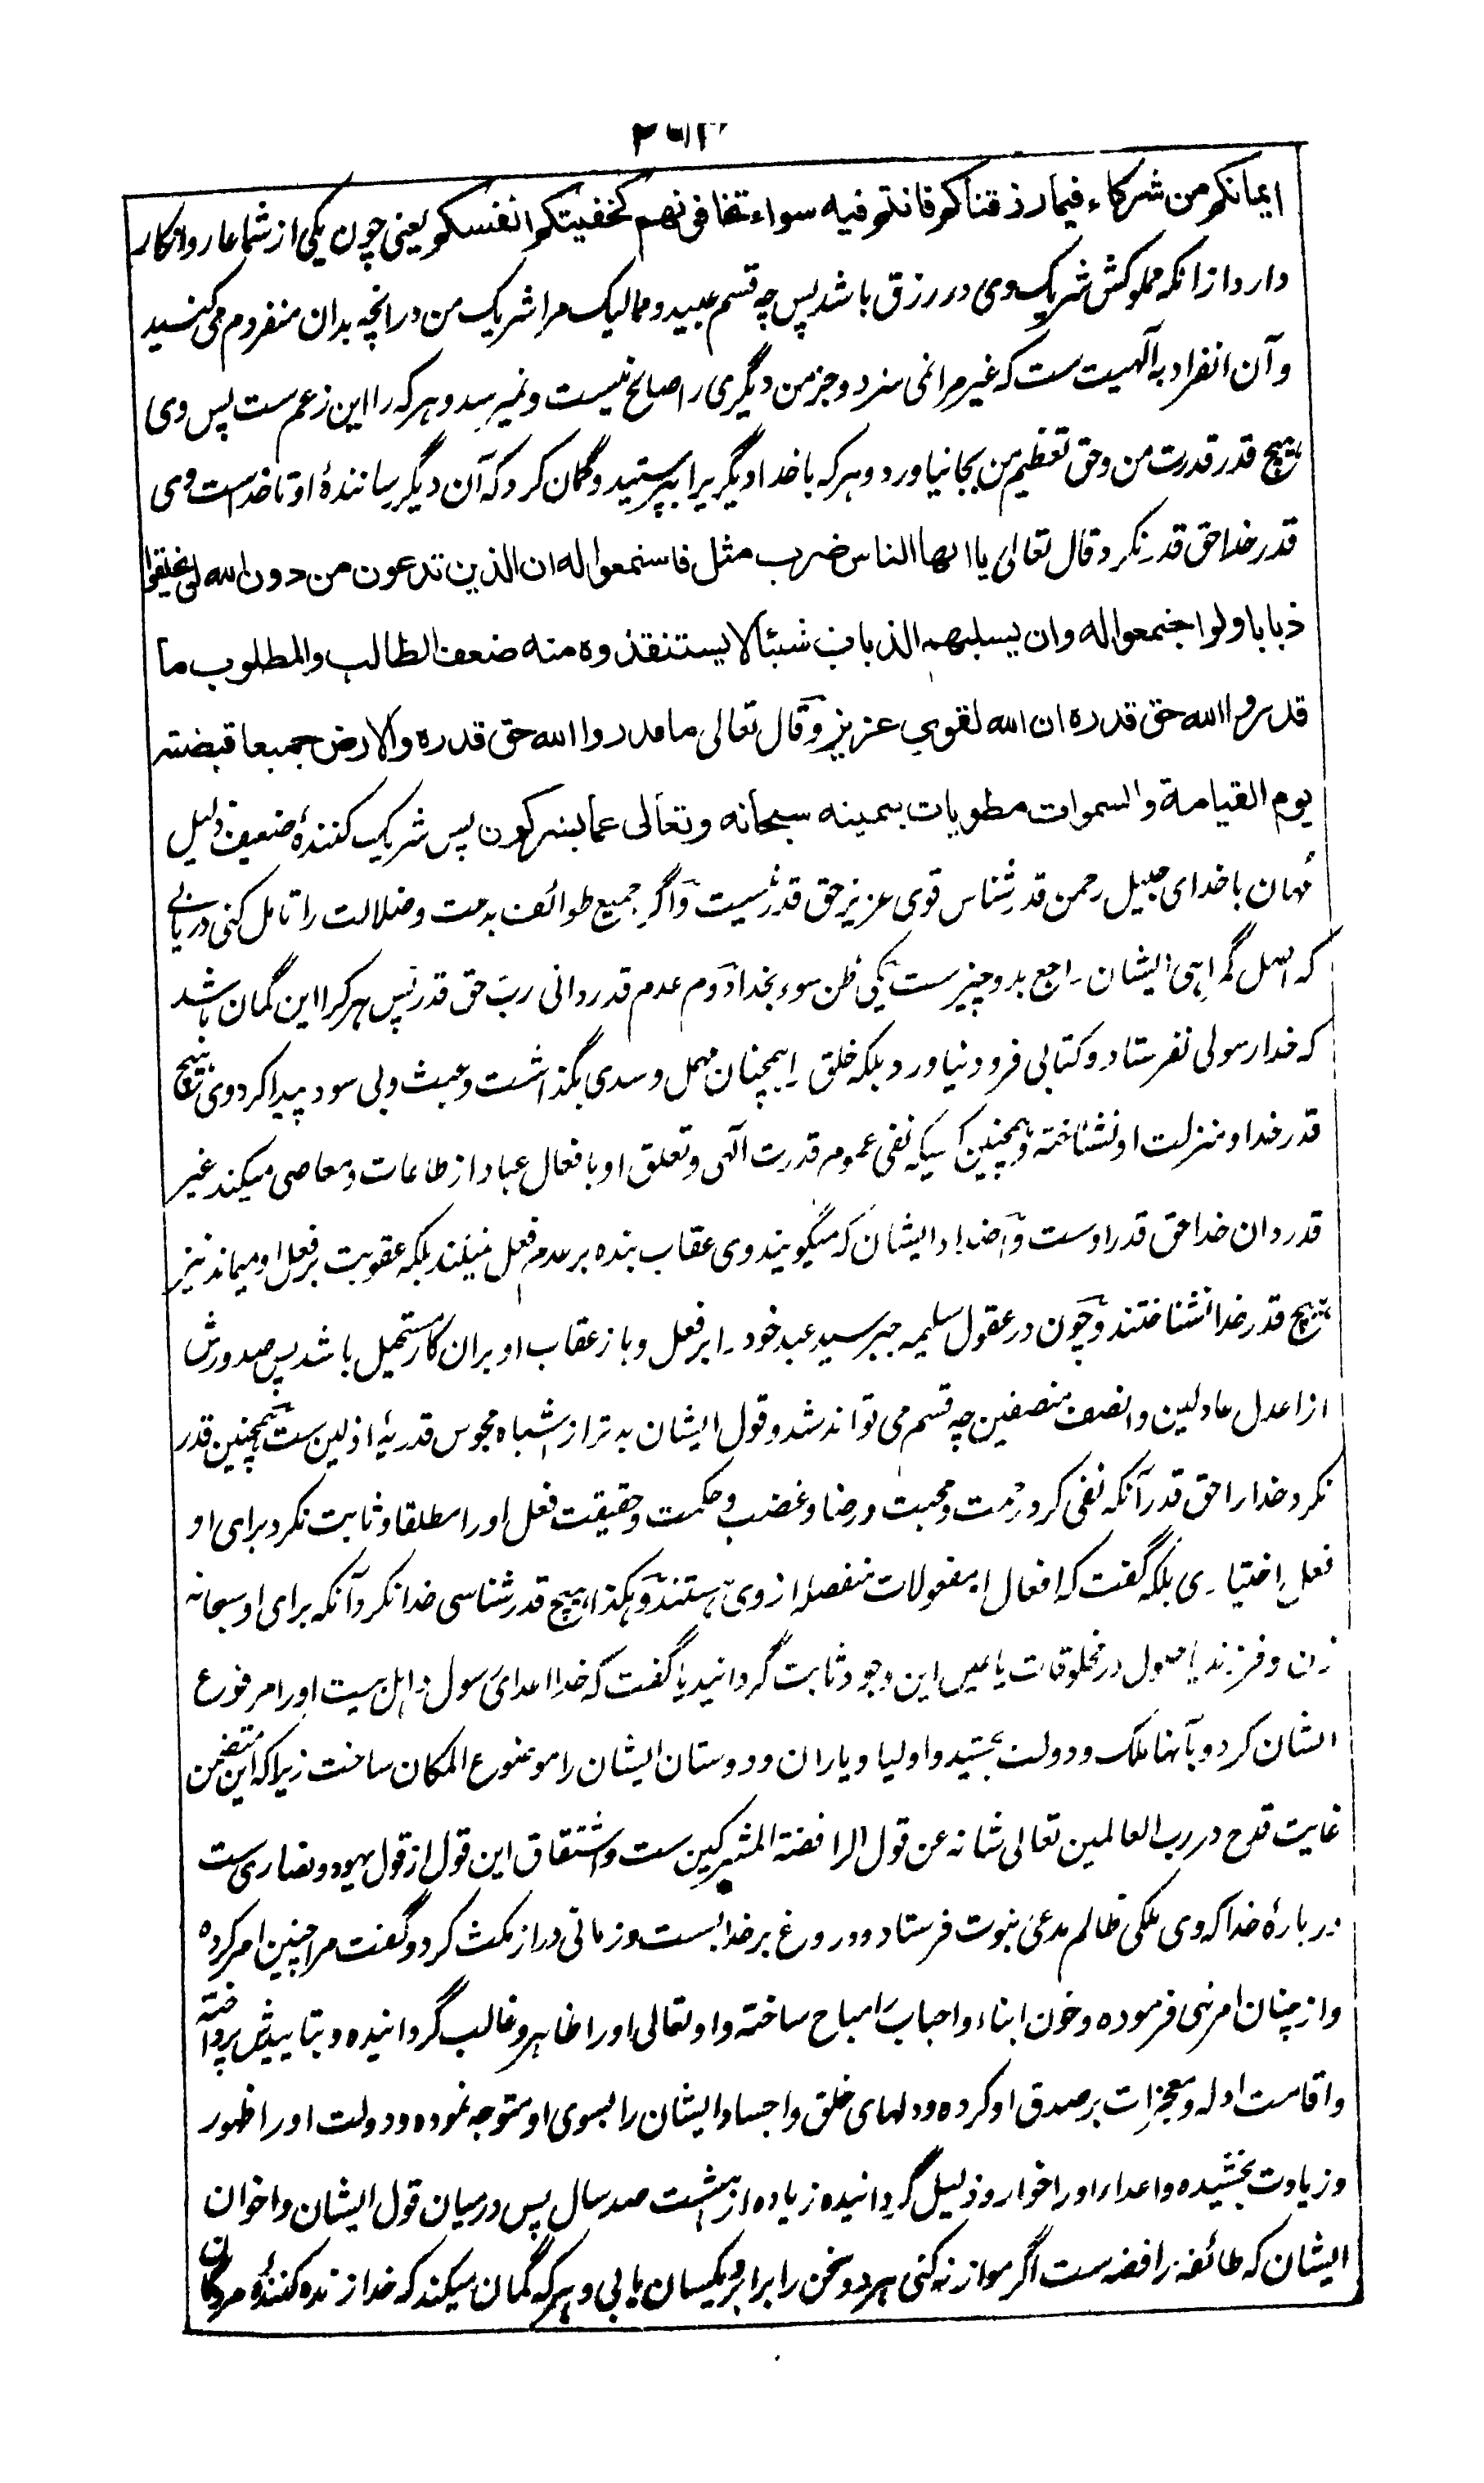 ایمانکم من شرکاء فیما رزقناکم فانتم فیه سواء تخافونهم کخفیتکم انفسکم یعنی چون یکی از شما عار و انکار
دارد از انکه مملوکش شریک وی در رزق باشد پس چه قسم عبید و ممالیک مرا شریک من در انچه بدان منفردم می کنید
و آن انفراد به آلهیت ست که غیر مرا نمی سزد و جز من دیگری را صالح نیست و نمیرسد و هر که را این زعم ست پس وی
هیچ قدر قدرت من و حق تعظیم من بجا نیاورد و هر که با خدا دیگریرا بپرستید و گمان کرد که آن دیگر رسانندهٔ او تا خداست وی
قدر خدا حق قدر نکرد قال تعالی یا ایها الناس ضرب مثل فاستمعوا له ان الذین تدعون من دون الله لن یخلقوا
ذبابا ولو اجتمعوا له وان یسلبهم الذباب شیئا لا یستنقذوه منه ضعف الطالب والمطلوب ما
قدروا الله حق قدره ان الله لقوی عزیز و قال تعالی ما قدروا الله حق قدره والارض جمیعا قبضته
یوم القیامة والسموات مطویات بیمینه سبحانه وتعالی عما یشرکون پس شریک کنندهٔ ضعیف ذلیل
مهان با خدای جلیل رحمن قدرشناس قوی عزیز حق قدر نیست و اگر جمیع طوائف بدعت و ضلالت را تامل کنی دریابی
که اصل گمراهی ایشان راجع بدو چیز ست یکی ظن سوء بخدا دوم عدم قدردانی رب حق قدر پس هر کرا این گمان باشد
که خدا رسولی نفرستاد و کتابی فرود نیاورد بلکه خلق را همچنان مهمل و سدی بگذاشت و عبث و بی سود پیدا کرد وی هیچ
قدر خدا و منزلت او نشناخته و همچنین کسیکه نفی عموم قدرت آلهی و تعلق او بافعال عباد از طاعات و معاصی میکند غیر
قدردان خدا حق قدر اوست و اضداد ایشان که میگویند وی عقاب بنده بر عدم فعل میکند بلکه عقوبت بر فعل او میماند نیز
هیچ قدر خدا نشناختند و چون در عقول سلیمه جبر سید عبد خود را بر فعل و باز عقاب او بران کار مستحیل باشد پس صدورش
از اعدل عادلین و انصف منصفین چه قسم می تواند شد و قول ایشان بدتر از اشباه مجوس قدریهٔ اذلین ست همچنین قدر
نکرد خدا را حق قدر آنکه نفی کرد رحمت و محبت و رضا و غضب و حکمت و حقیقت فعل او را مطلقا و ثابت نکرد برای او
فعل اختیاری بلکه گفت که افعال او مفعولات منفصله از وی هستند و هکذا هیچ قدرشناسی خدا نکرد آنکه برای او سبحانه
زن و فرزند یا حلول در مخلوقات یا عین این وجود ثابت گردانید یا گفت که خدا اعدای رسول و اهل بیت او را مرفوع
الشان کرد و بآنها ملک و دولت بخشید و اولیا و یاران و دوستان ایشان را موضوع المکان ساخت زیرا که این متضمن
غایت قدح در رب العالمین تعالی شانه عن قول الرافضة المشرکین ست و اشتقاق این قول از قول یهود و نصاری ست
دربارهٔ خدا که وی ملکی ظالم مدعی نبوت فرستاد و دروغ بر خدا بست و زمانی دراز مکث کرد و گفت مرا چنین امر کرده
و از چنان امر نهی فرموده و خون ابناء و احباب را مباح ساخته و او تعالی او را ظاهر و غالب گردانیده و بتاییدش پرداخته
و اقامت ادله و معجزات بر صدق او کرده و دلهای خلق و اجساد ایشان را بسوی او متوجه نموده و دولت او را ظهور
و زیادت بخشیده و اعداء او را خوار و ذلیل گردانیده زیاده از هشت صد سال پس در میان قول ایشان و اخوان
ایشان که طائفه رافضه ست اگر موازنه کنی هر دو سخن را برابر و یکسان یابی و هر که گمان میکند که خدا زنده کنندهٔ مردگان